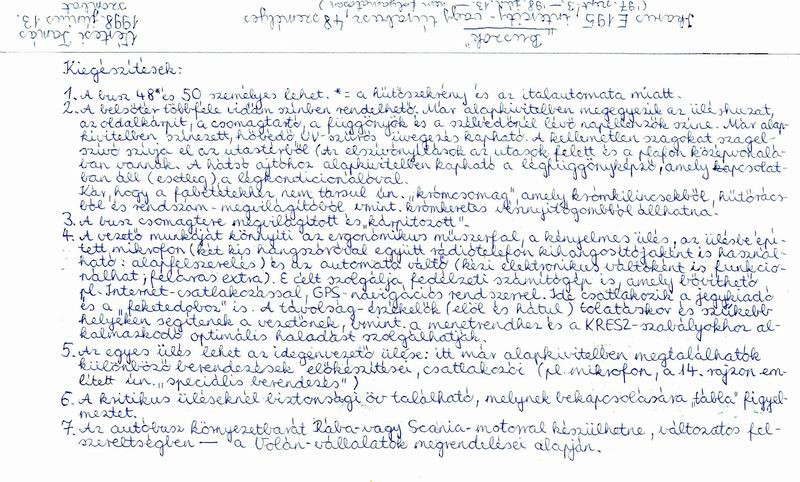 Ikarus E195 intercity- vagy túrabusz, 48 személyes
"Buszok"
Vértesi Tamás
1998. június 13.
szombat
Kiegészítések:
1. A busz 48* és 50 személyes lehet. * = a hűtőszekrény és az italautomata miatt.
2. A belsőtér többféle vidám színben rendelhető. Már alapkivitelben megegyezik az üléshuzat,
az oldalkárpit, a csomagtartó, a függönyök és a szélvédőnél lévő napellenzők színe. Már alap-
kivitelben színezett, hővédő UV-szűrős üvegezés kapható. A kellemetlen szagokat szagel-
szívó szívja el az utastérből (Az elszívónyílások az utasok felett és a plafon középvonalá-
ban vannak. A hátsó ajtóhoz alapkivitelben kapható a légfüggönyképző, amely kapcsolat-
ban áll (esetleg) a légkondicionálóval.
Kár, hogy a fabetétekhez nem társul ún. "krómcsomag", amely krómkilincsekből, hűtőrács-
ból és rendszám-megvilágítóból vmint. krómkeretes vésznyitógombból állhatna.
3. A busz csomagtere megvilágított és "kárpitozott".
4. A vezető munkáját könnyíti az ergonómikus műszerfal, a kényelmes ülés, az ülésbe épí-
tett mikrofon (két kis hangszóróval együtt rádiótelefon kihangosítójaként is használ-
ható: alapfelszerelés) és az automata váltó (kézi elektronikus váltóként is funkcio-
nálhat; feláras extra). E célt szolgálja fedélzeti számítógép is, amely bővíthető
pl. Internet-csatlakozással, GPS-navigációs rendszerrel. Ide csatlakozik a jegykiadó
és a "feketedoboz" is. A távolság-érzékelők (elöl és hátul) tolatáskor és szűkebb
helyeken segítenek a vezetőnek, vmint. a menetrendhez és a KRESZ-szabályokhoz al-
kalmazkodó optimális haladást szolgálhatják.
5. Az egyes ülés lehet az idegenvezető ülése: itt már alapkivitelben megtalálhatók
különböző berendezések előkészítései, csatlakozói (pl. mikrofon, a 14. rajzon em-
lített ún. "speciális berendezés")
6. A kritikus üléseknél biztonsági öv található, melynek bekapcsolására "tábla" figyel-
meztet.
7. Az autóbusz környezetbarát Rába- vagy Scania-motorral készülhetne, változatos fel-
szereltségben — a Volán-vállalatok megrendelései alapján.